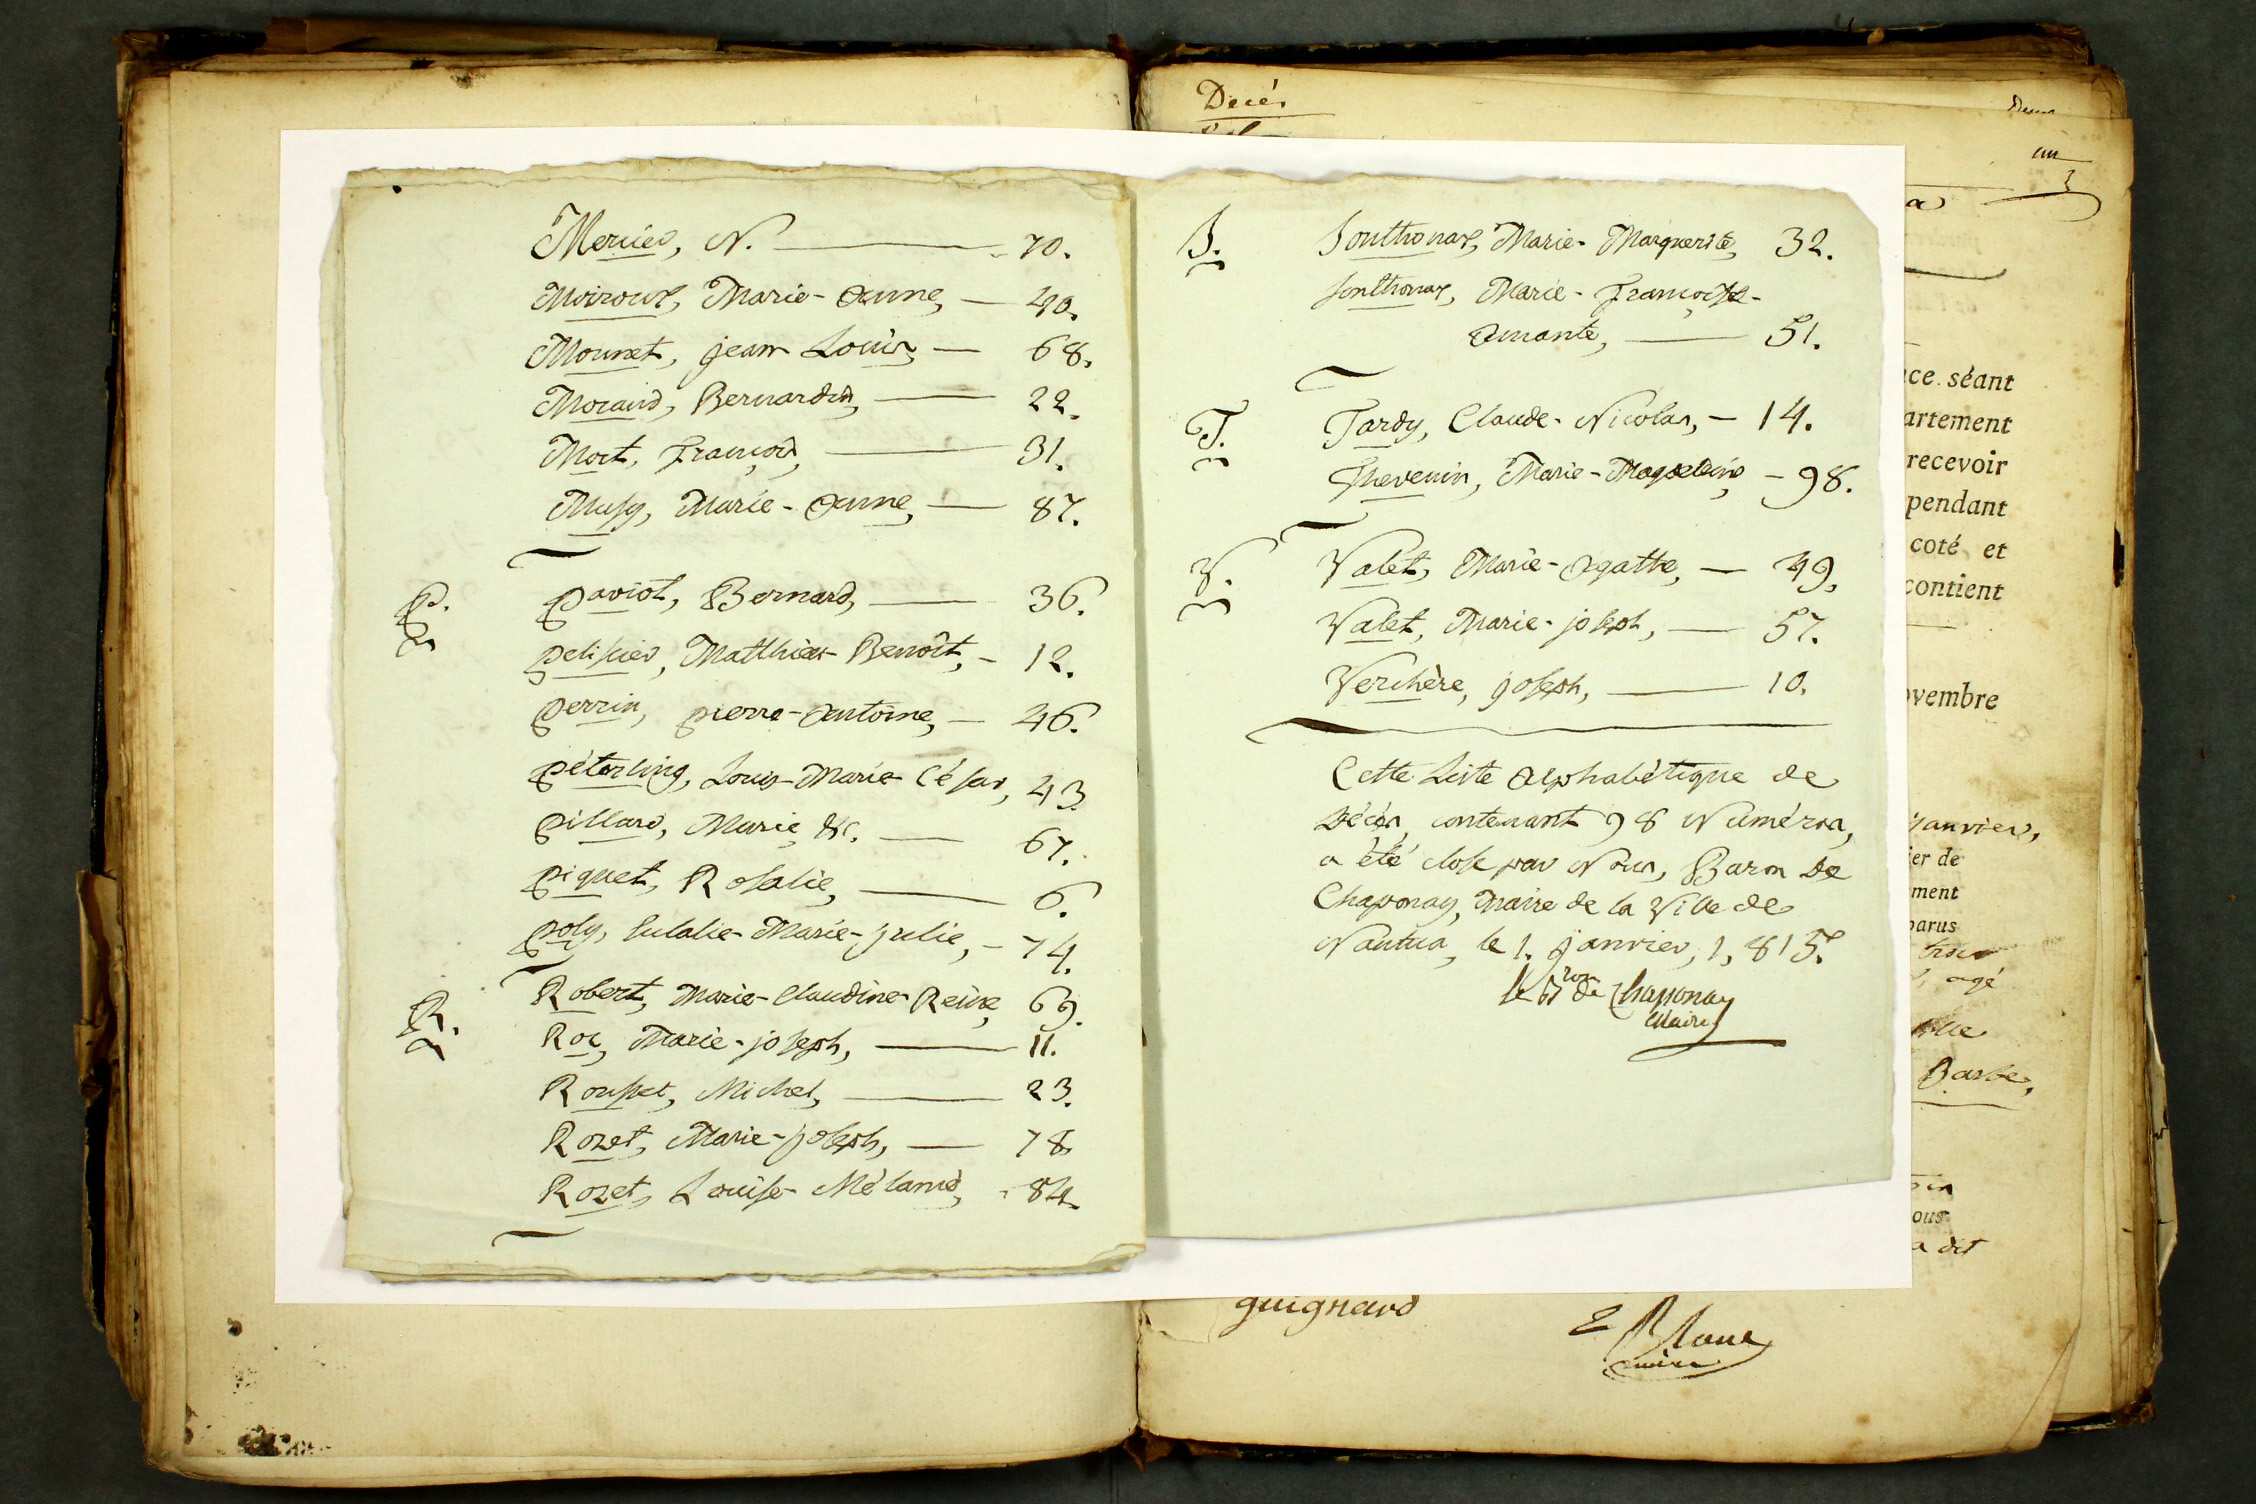 Mercier, N. 70.
Moiroux, Marie-Anne, 40.
Mounet, jean Louis, 68.
Moraud, Bernardin, 22.
Mort, François, 31.
Musy, Marie-Anne, 87.
P.
Paviot, Bernard, 36.
Pelissier, Matthieu Benoît, 12.
Perrin, pierre-Antoine, 46.
Péterling, Louis-Marie César, 43.
Pillard, Marie &c. 67.
Piquet, Rosalie, 6.
Poly, Eulalie-Marie-julie, 74.
R.
Robert, Marie-Claudine Reine, 69.
Roc, Marie-joseph, 11.
Rousset, Michel, 23.
Rozet, Marie-joseph, 78
Rozet, Louise-Mélanie, 84.
S. Sonthonax, Marie-Marguerite, 32.
Sonthonax, Marie-Françoise-
Amante, 51.
T. Tardy, Claude-Nicolas, 14.
Thevenin, Marie-Magdeleine 98.
V. Valet, Marie-Agathe, 49,
Valet, Marie-joseph, 57.
Verchère, joseph, 10.
Cette Liste Alphabétique de
Décès, contenant 98 Numéros,
a été close par Nous, Baron De
Chaponay, Maire de la Ville de
Nantua, le 1. janvier, 1,815.
le Bron de Chaponay
Maire
Décès
an
a
ce séant
artement
recevoir
pendant
coté et
contient
ovembre
janvier,
ier de
ment
parus
agé
Barbe,
ous
a dit
guignard